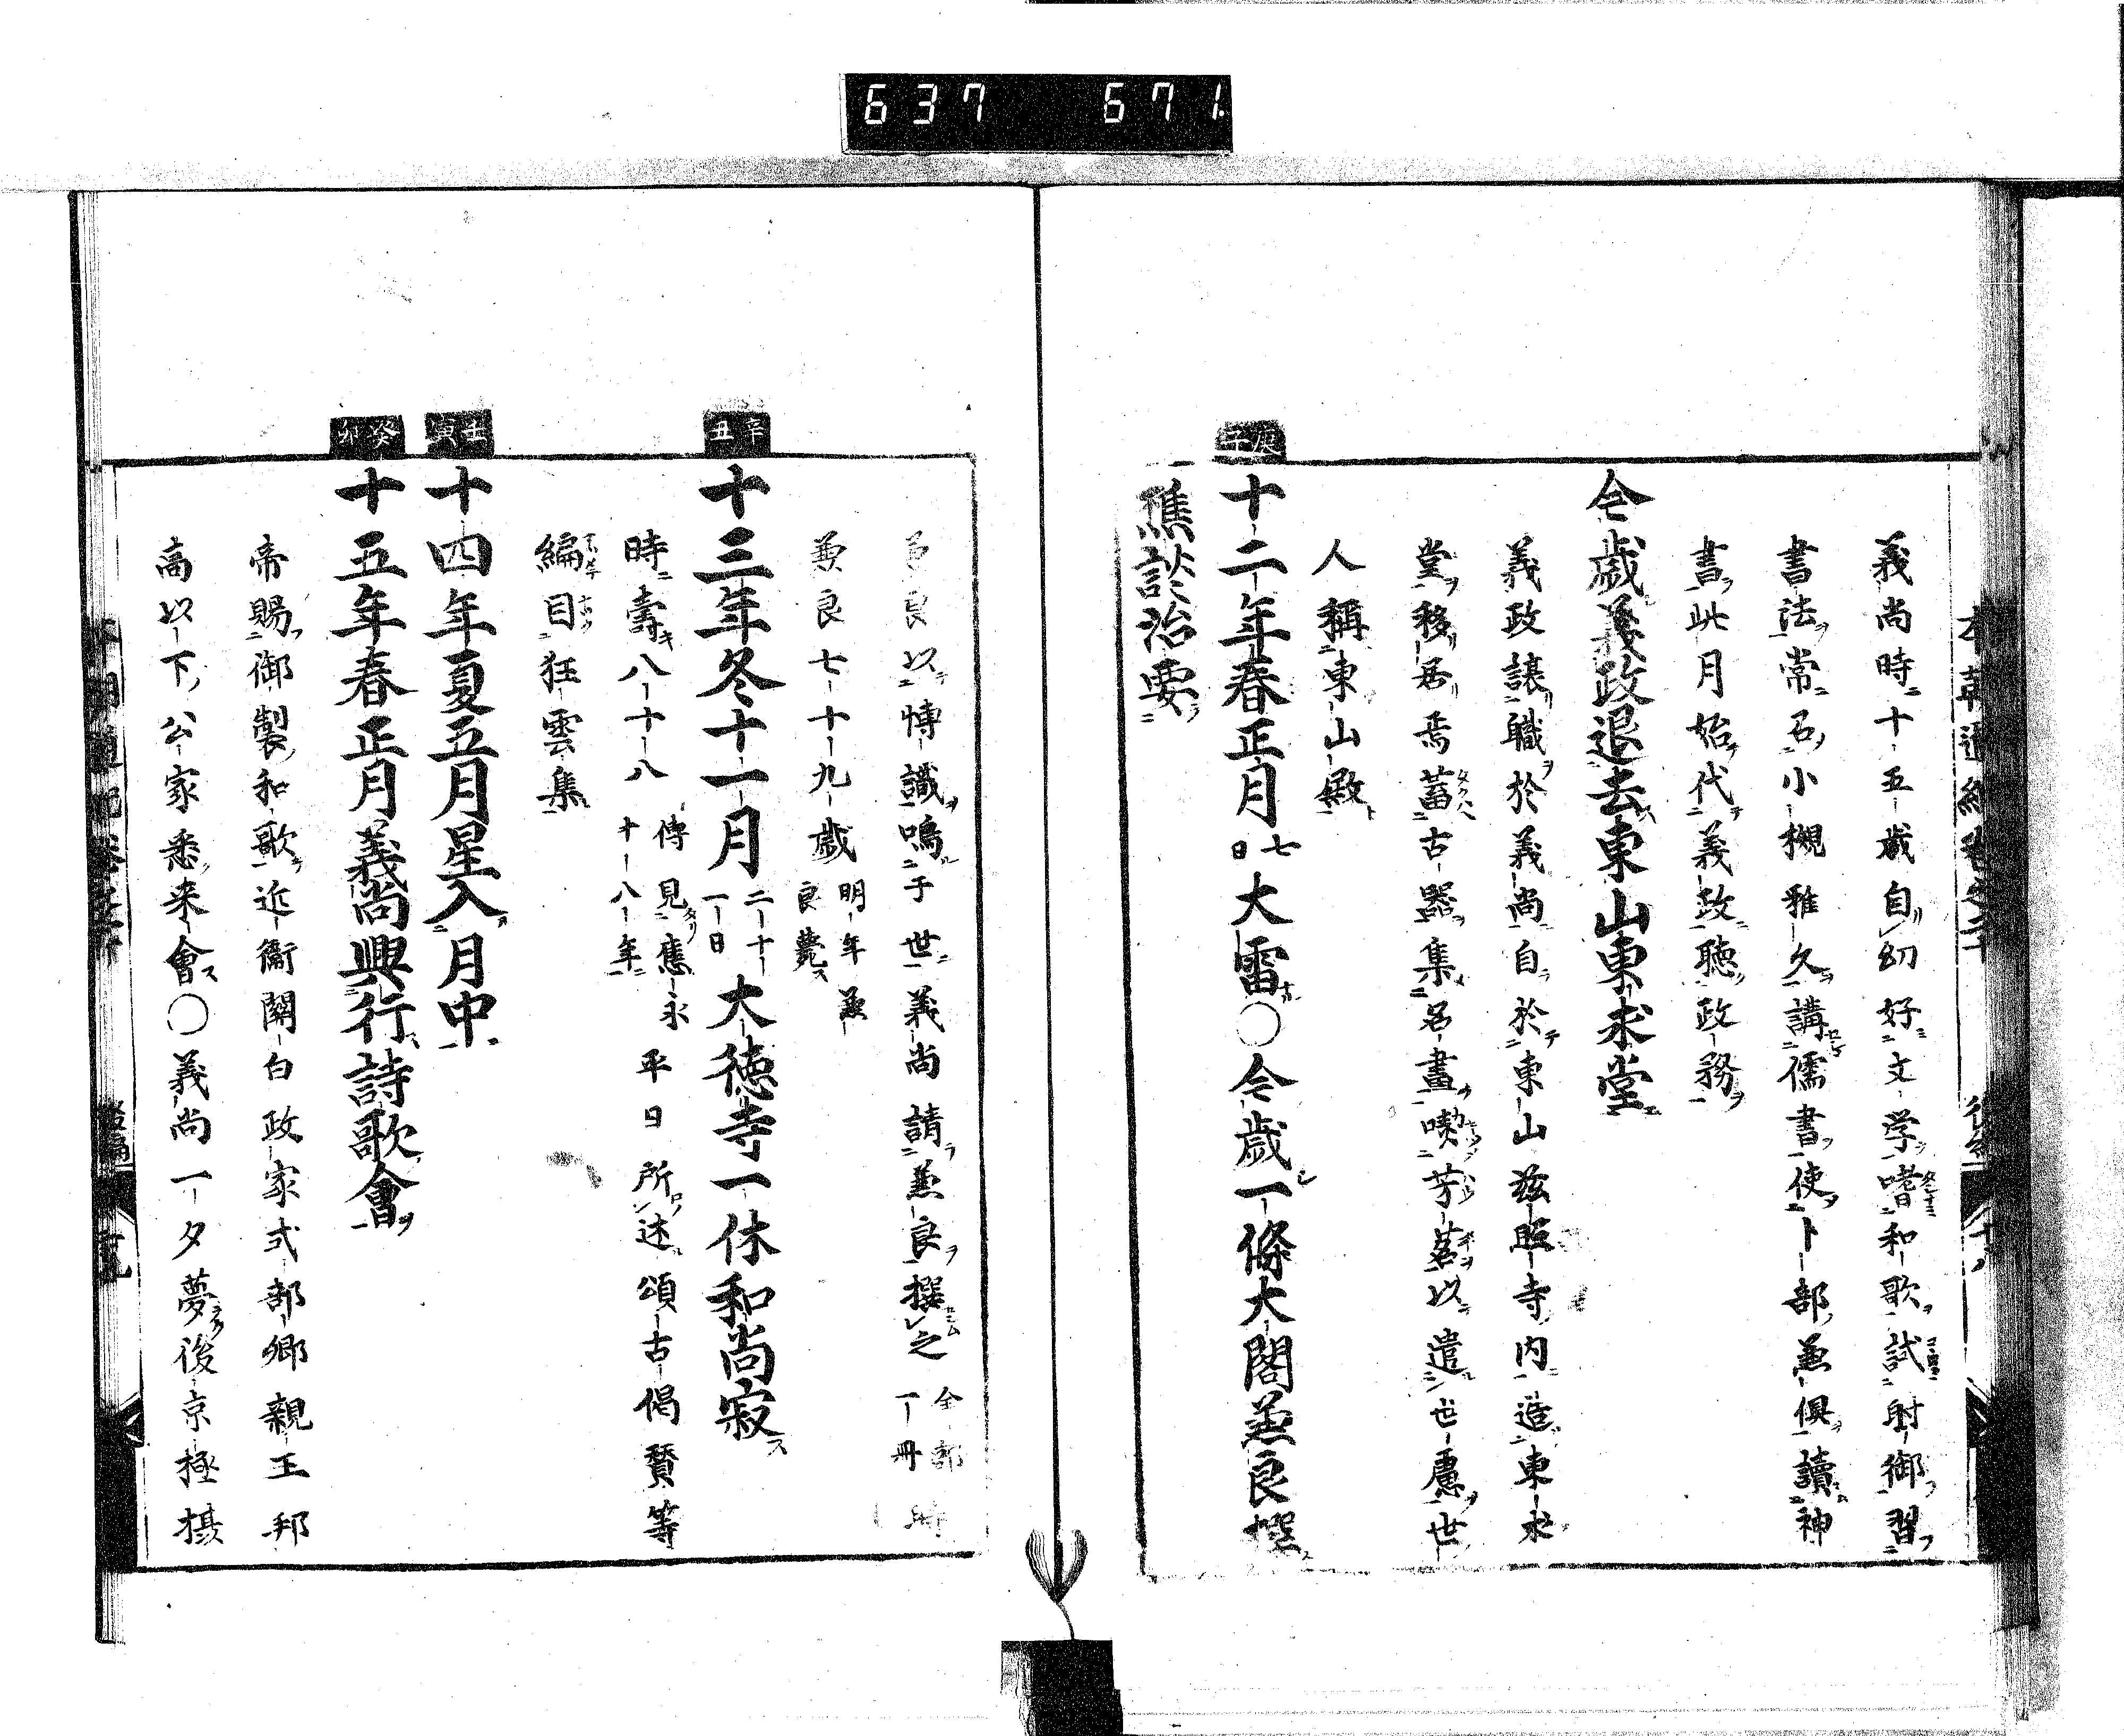 637 671
義尚時十五歳自幼好文学嗜和歌試射御習
書法常召小槻雅久講儒書使卜部兼倶讀神
書此月始代義政聴政務
今歳義政退去東山東求堂
義政譲職於義尚自於東山慈照寺内造東求
堂移居焉蓄古器集名畫喫芳茗以遣世慮世
人稱東山殿
庚子
十二年春正月七日大雷〇今歳一條大閤兼良撰
樵談治要
兼良以博識鳴于世義尚請兼良撰之全部一冊時
兼良七十九歳明年兼良薨
辛丑
十三年冬十一月二十一日大徳寺一休和尚寂
時壽八十八傳見應永十八年平日所述頌古偈賛等
編目狂雲集
壬寅
十四年夏五月星入月中
癸卯
十五年春正月義尚興行詩歌會
帝賜御製和歌近衞關白政家式部卿親王邦
高以下公家悉来會〇義尚一夕夢後京極攝